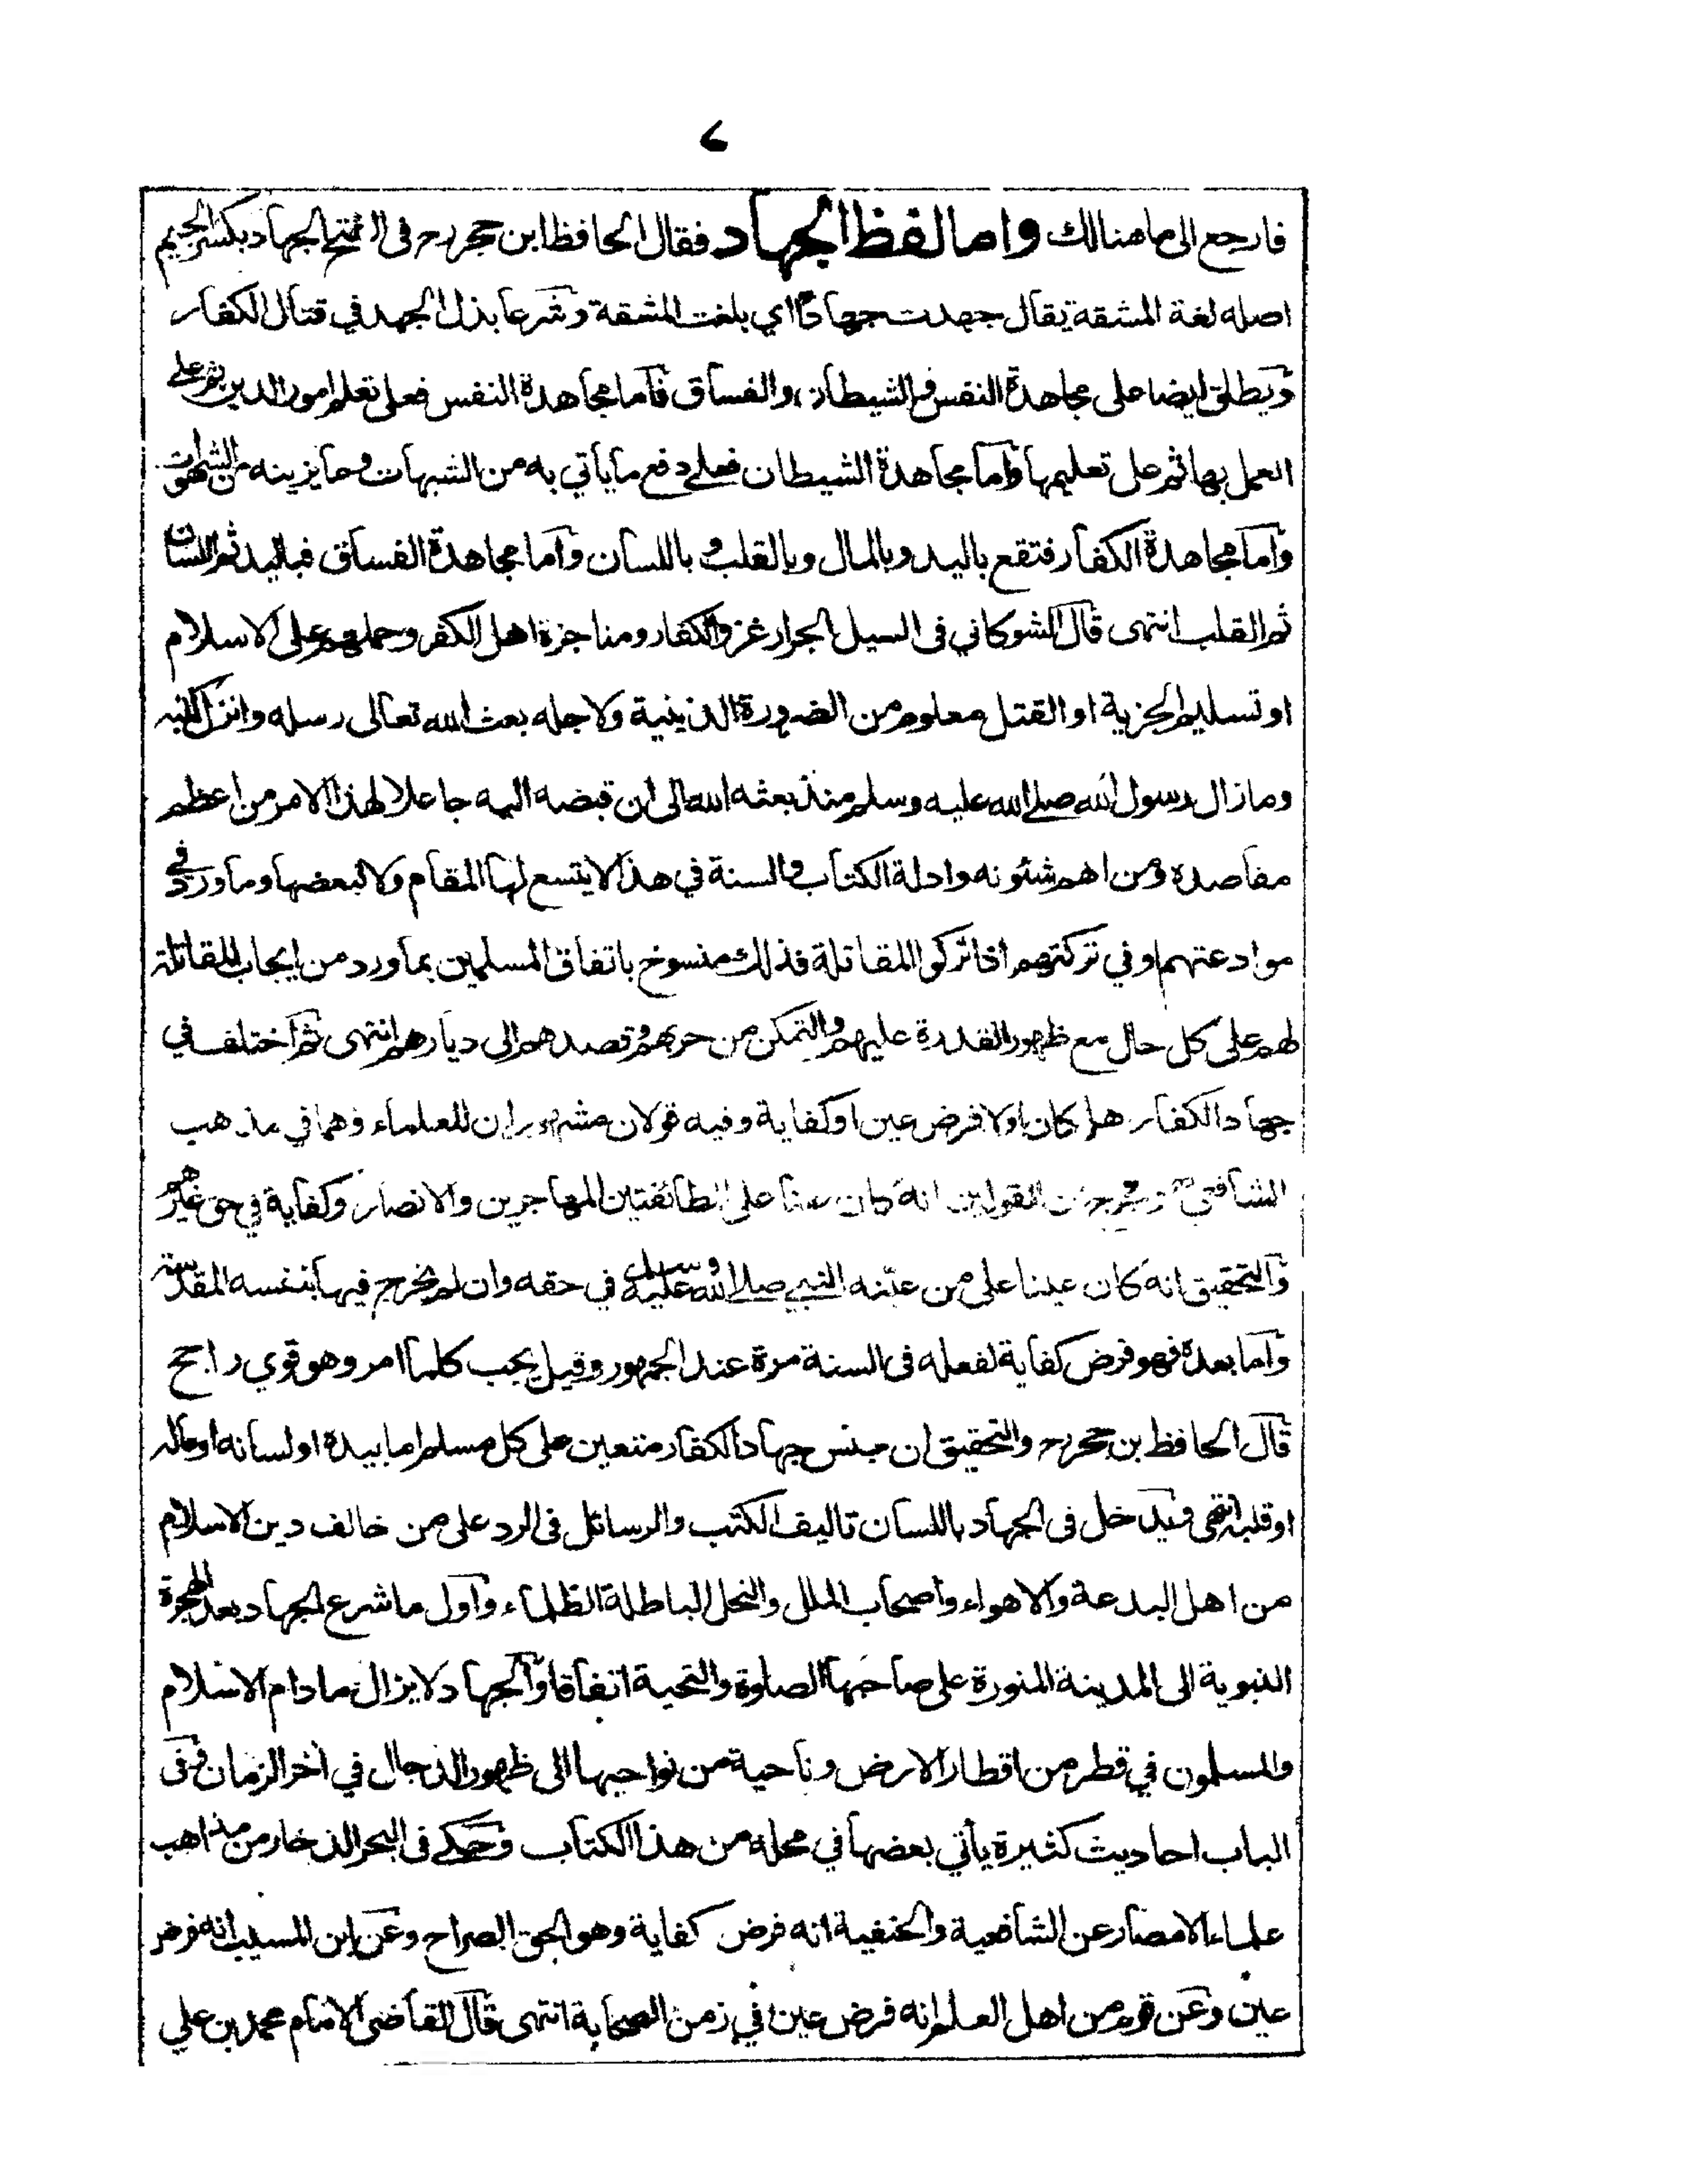 ۶
فارجع الى ما هنالك واما لفظ الجهاد فقال الحافظ ابن حجر رح فى الفتح الجهاد بكسر الجيم
اصله لغة المشقة يقال جهدت جهادًا اي بلغت المشقة وشرعا بذل الجهد في قتال الكفار
ويطلق ايضا على مجاهدة النفس والشيطان والفساق فاما مجاهدة النفس فعلى تعلم امور الدين ثم على
العمل بها ثم على تعليمها واما مجاهدة الشيطان فعلى دفع ما يأتي به من الشبهات وما يزينه من الشهوات
واما مجاهدة الكفار فتقع باليد وبالمال وبالقلب وباللسان واما مجاهدة الفساق فباليد ثم اللسان
ثم القلب انتهى قال الشوكاني فى السيل الجرار غزو الكفار ومناجزة اهل الكفر وحملهم على الاسلام
او تسليم الجزية او القتل معلوم من الضرورة الدينية ولاجله بعث الله تعالى رسله وانزل كتبه
وما زال رسول الله صلى الله عليه وسلم منذ بعثه الله الى ان قبضه اليه جاعلا لهذا الامر من اعظم
مقاصده ومن اهم شئونه وادلة الكتاب والسنة في هذا لا يتسع لها المقام ولا لبعضها وما ورد في
موادعتهم او في تركتهم اذا تركوا المقاتلة فذلك منسوخ باتفاق المسلمين بما ورد من ايجاب المقاتلة
لهم على كل حال مع ظهور القدرة عليهم والتمكن من حربهم وقصدهم الى ديارهم انتهى ثم اختلف في
جهاد الكفار هل كان اولا فرض عين او كفاية وفيه قولان مشهوران للعلماء وهما في مذهب
الشافعي القولين انه كان عينا على الطائفتين المهاجرين والانصار وكفاية في حق غيرهم
والتحقيق انه كان عينا على من عيّنه النبي صلى الله عليه وسلم في حقه وان لم يخرج فيها بنفسه المقدسة
واما بعده فهو فرض كفاية لفعله فى السنة مرة عند الجمهور وقيل يجب كلما امر وهو قوي راجح
قال الحافظ بن حجر رح والتحقيق ان جنس جهاد الكفار متعين على كل مسلم اما بيده او لسانه او ماله
او قلبه انتهى ويدخل فى الجهاد باللسان تاليف الكتب والرسائل فى الرد على من خالف دين الاسلام
من اهل البدعة والاهواء واصحاب الملل والنحل الباطلة الظلماء واول ما شرع الجهاد بعد الهجرة
النبوية الى المدينة المنورة على صاحبها الصلوة والتحية اتفاقا والجهاد لا يزال ما دام الاسلام
والمسلمون في قطر من اقطار الارض وناحية من نواحيها الى ظهور الدجال في اخر الزمان وفى
الباب احاديث كثيرة يأتي بعضها في محله من هذا الكتاب وحكى فى البحر الذخار من مذاهب
علماء الامصار عن الشافعية والحنفية انه فرض كفاية وهو الحق الصراح وعن ابن المسيب انه فرض
عين وعن قوم من اهل العلم انه فرض عين في زمن الصحابة انتهى قال القاضى الامام محمد بن علي